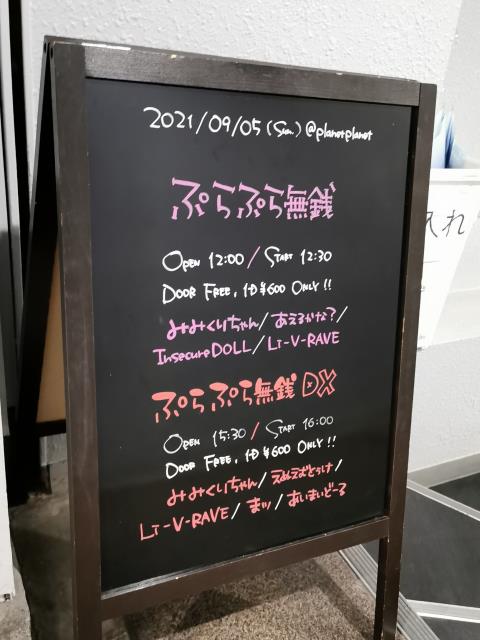 2021/09/05 (Sun.) @planetplanet
ぷらぷら無銭
OPEN 12:00 / START 12:30
DOOR FREE, 1D ¥600 ONLY!!
みみくりちゃん / あえるかな? /
InsecureDOLL / LI-V-RAVE
ぷらぷら無銭DX
OPEN 15:30 / START 16:00
DOOR FREE, 1D ¥600 ONLY!!
みみくりちゃん /
LI-V-RAVE / まッ / あいまいどーる
入れ